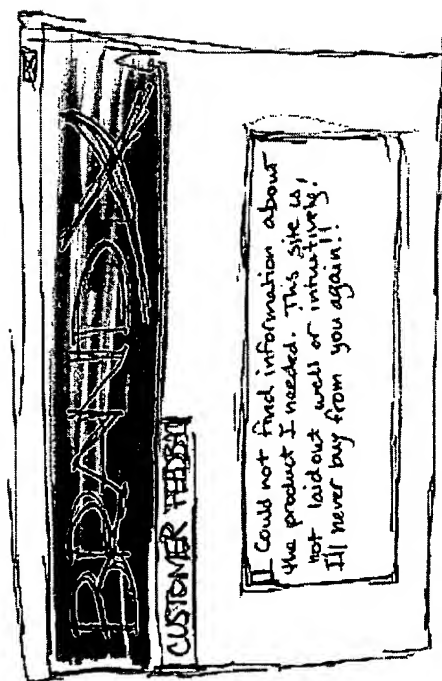 BRAND X
CUSTOMER
I could not find information about
the product I needed. This site is
not laid out well or intuitively.
I'll never buy from you again!!